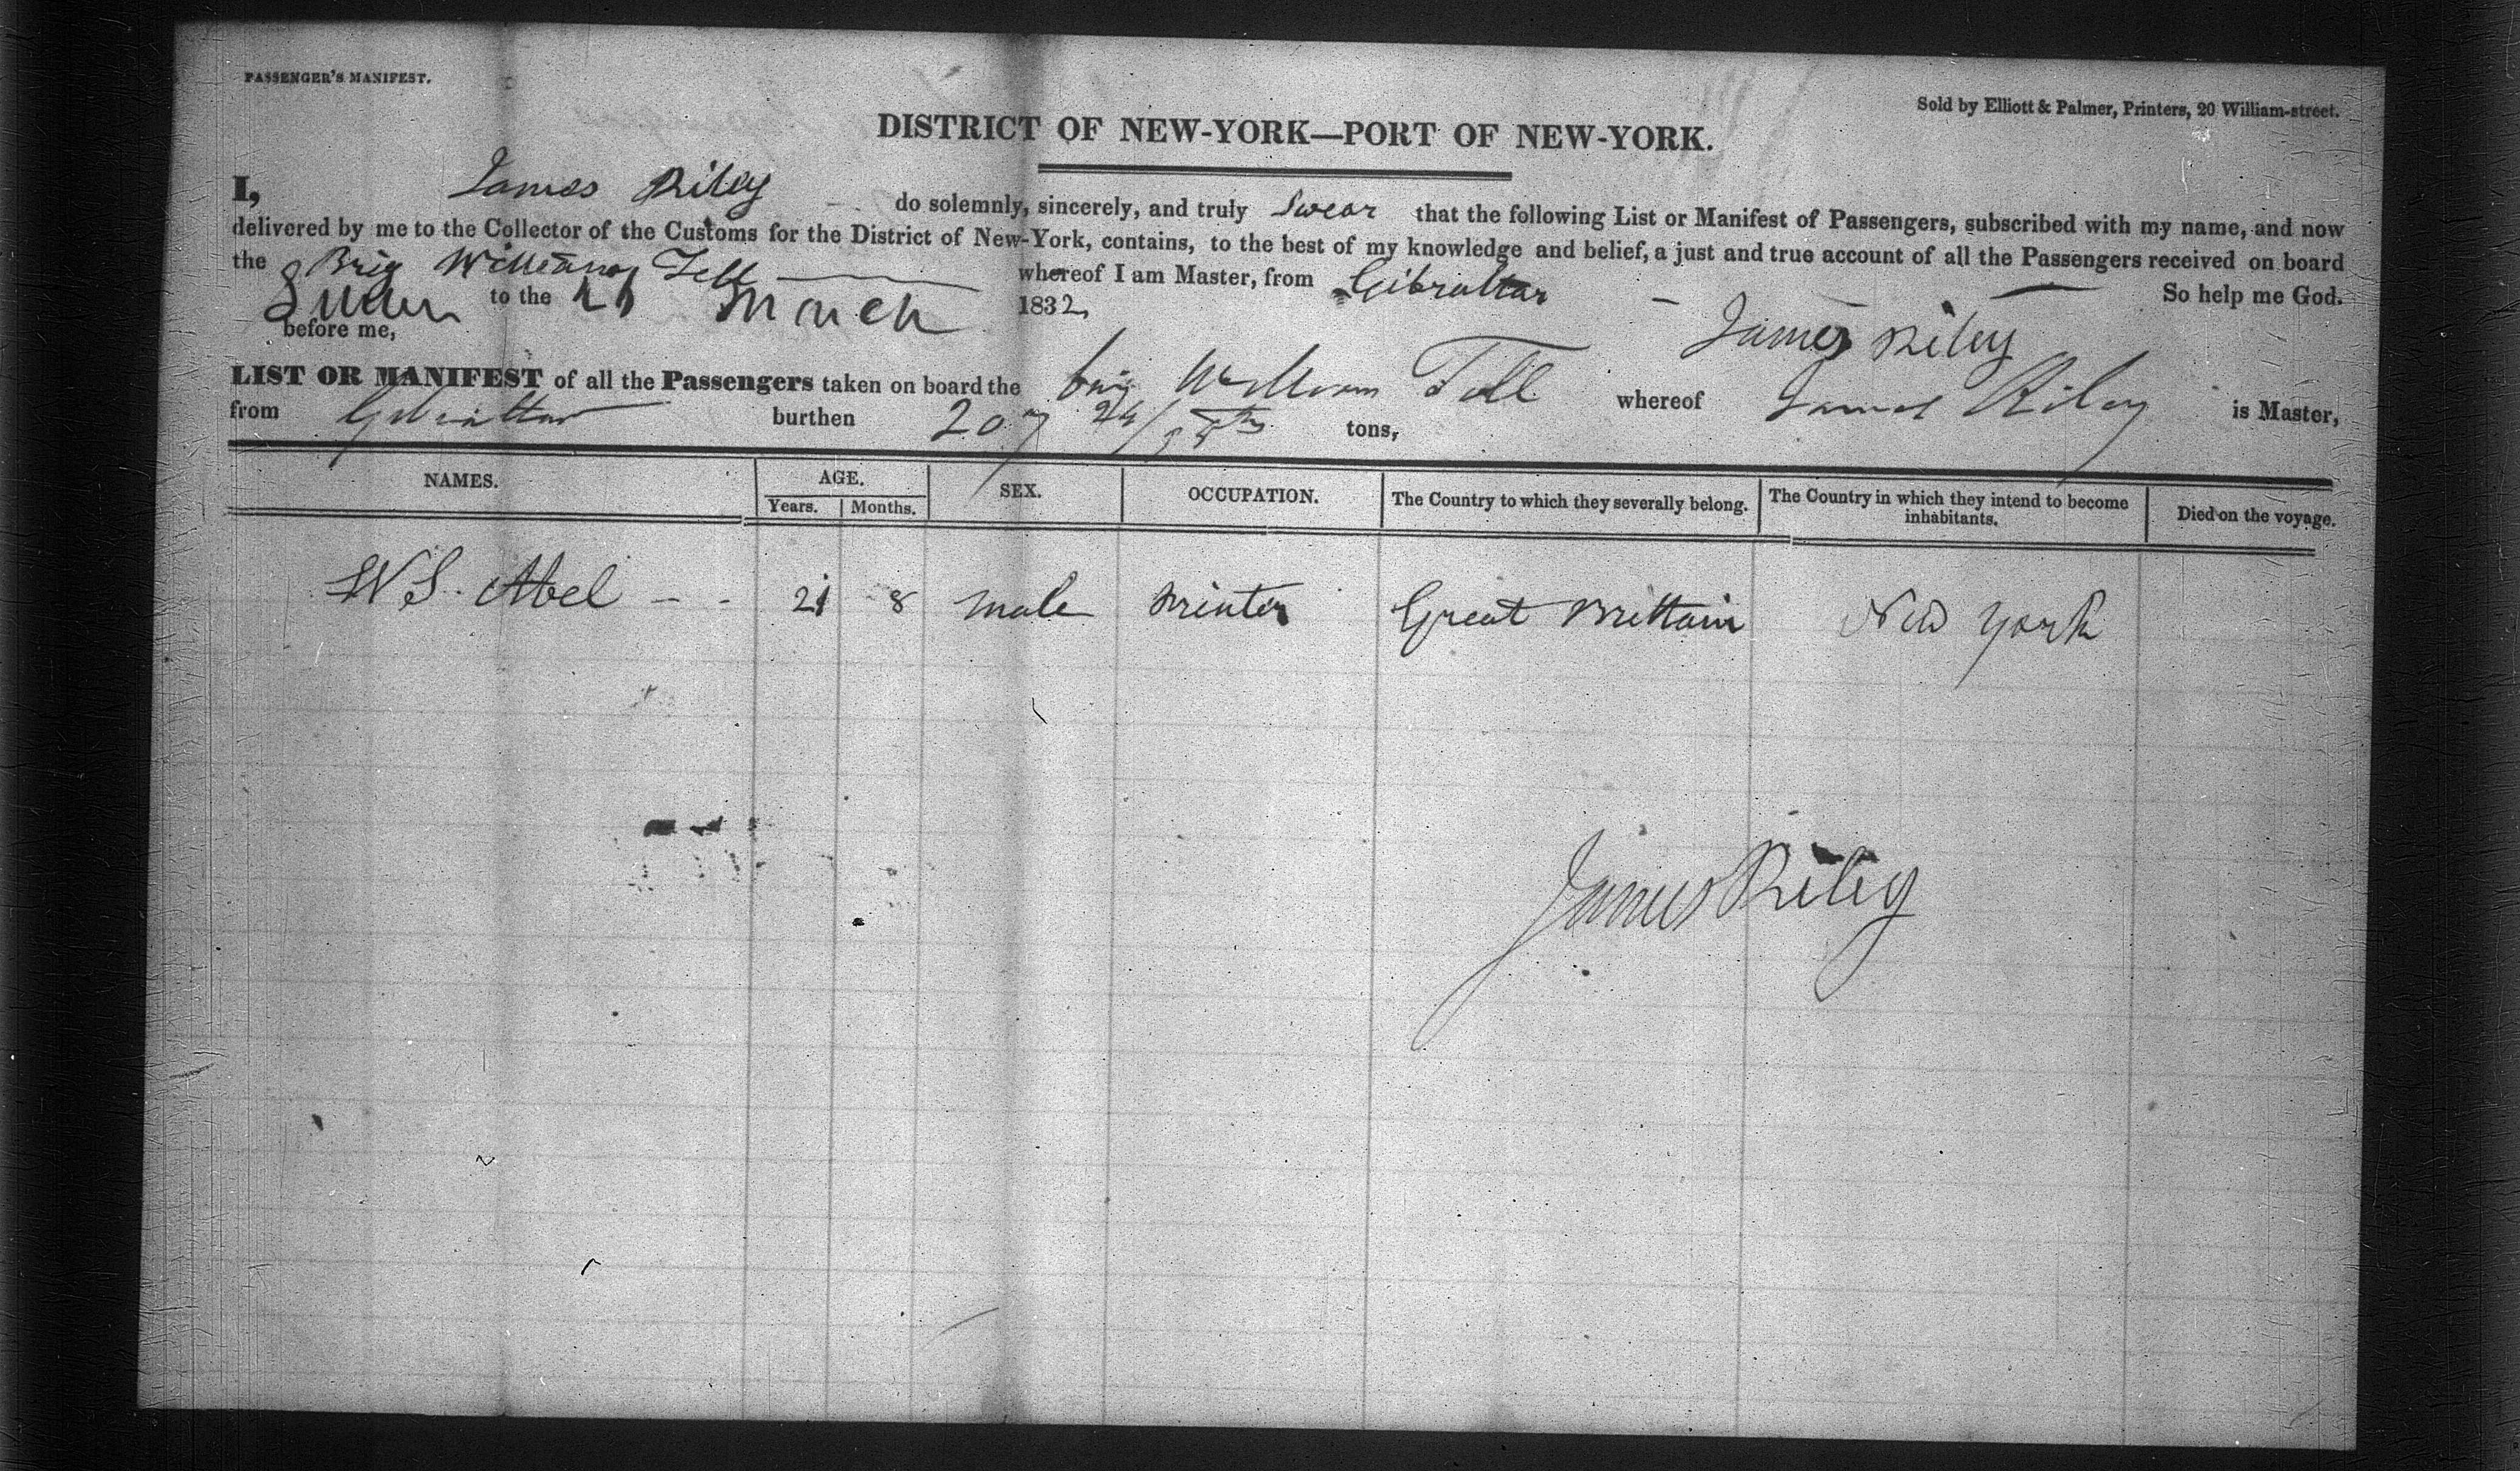 PASSENGER'S MANIFEST.
Sold by Elliott & Palmer, Printers, 20 William-street.
DISTRICT OF NEW-YORK—PORT OF NEW-YORK.
I, James Riley do solemnly, sincerely, and truly swear that the following List or Manifest of Passengers, subscribed with my name, and now
delivered by me to the Collector of the Customs for the District of New-York, contains, to the best of my knowledge and belief, a just and true account of all the Passengers received on board
the Brig William Tell whereof I am Master, from Gibraltar So help me God.
to the 21 March 1832
before me, James Riley
LIST OR MANIFEST of all the Passengers taken on board the brig William Tell whereof James Riley is Master,
from Gibraltar burthen 207 tons,
NAMES. AGE. SEX. OCCUPATION. The Country to which they severally belong. The Country in which they intend to become inhabitants. Died on the voyage.
Years. Months.
W S. Abel - - 21 8 male Printer Great Brittain New York
James Riley